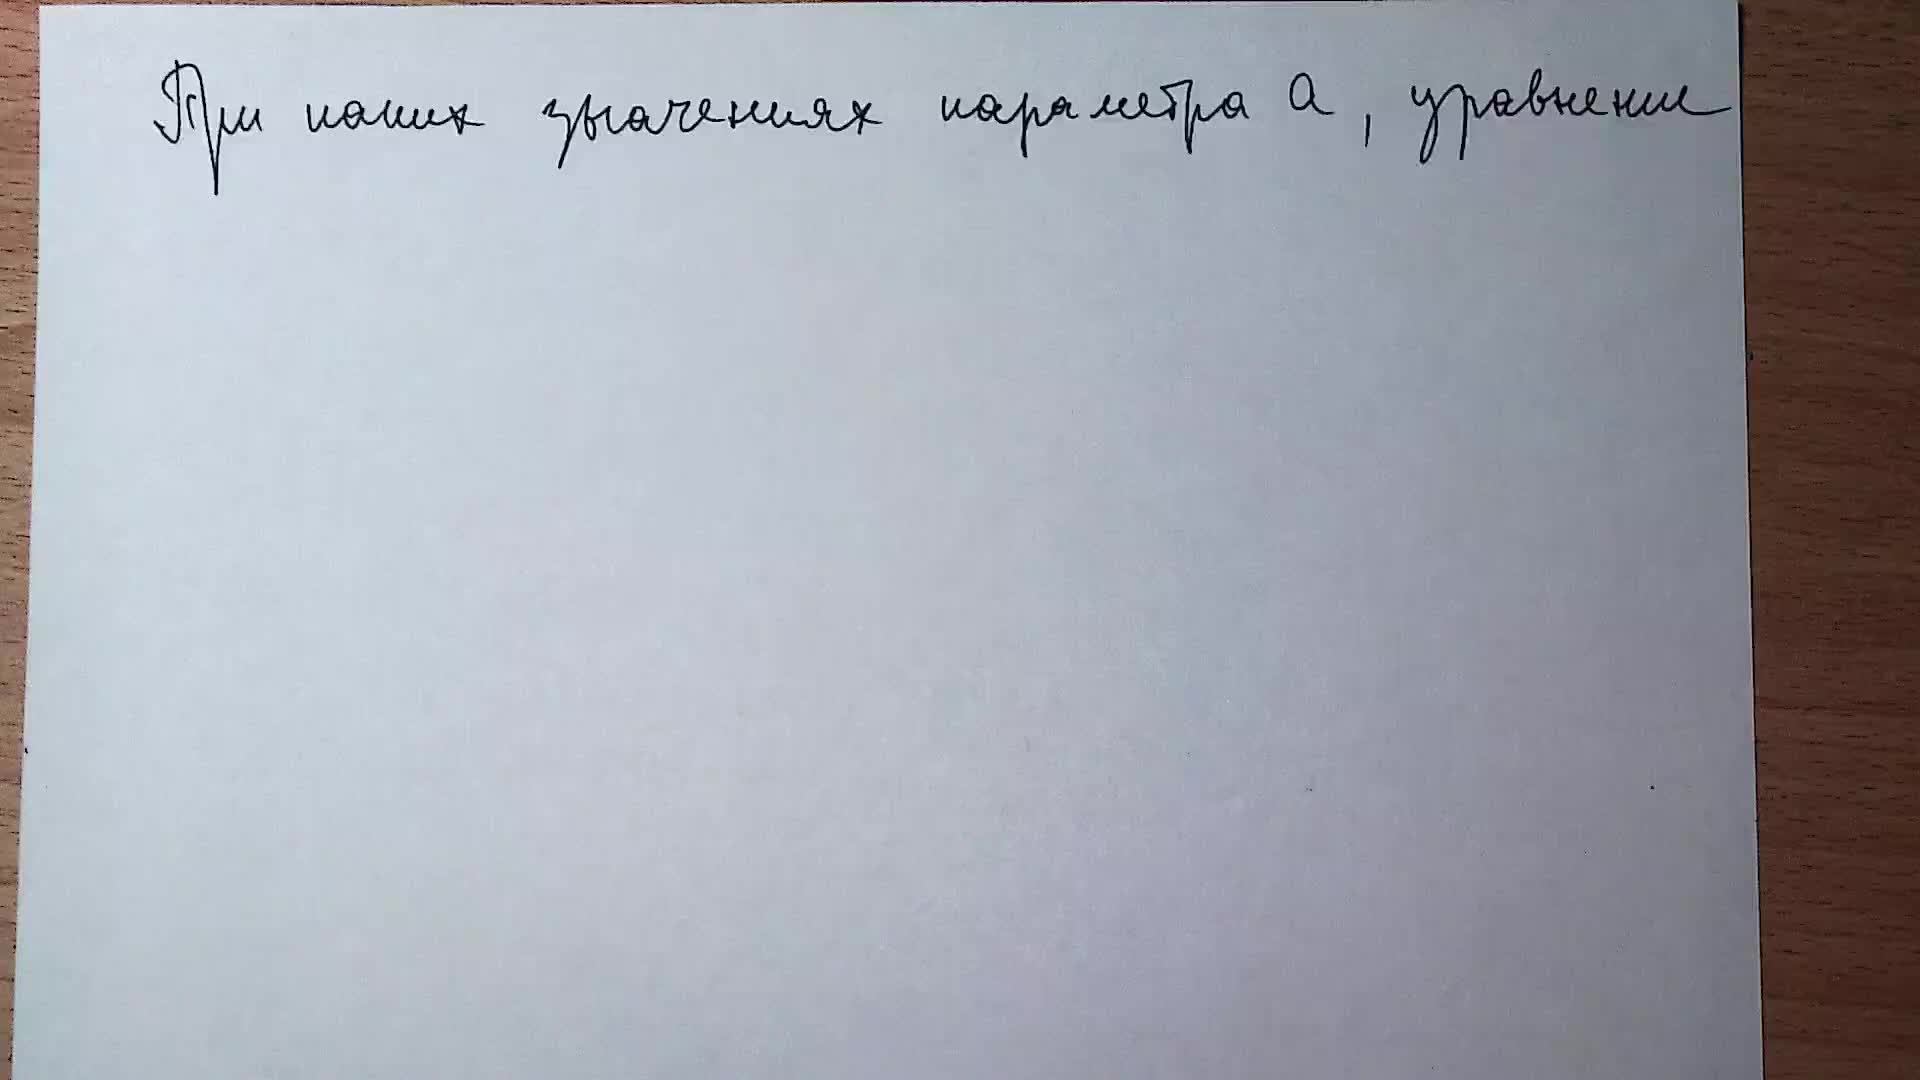 При каких значениях параметра a, уравнение